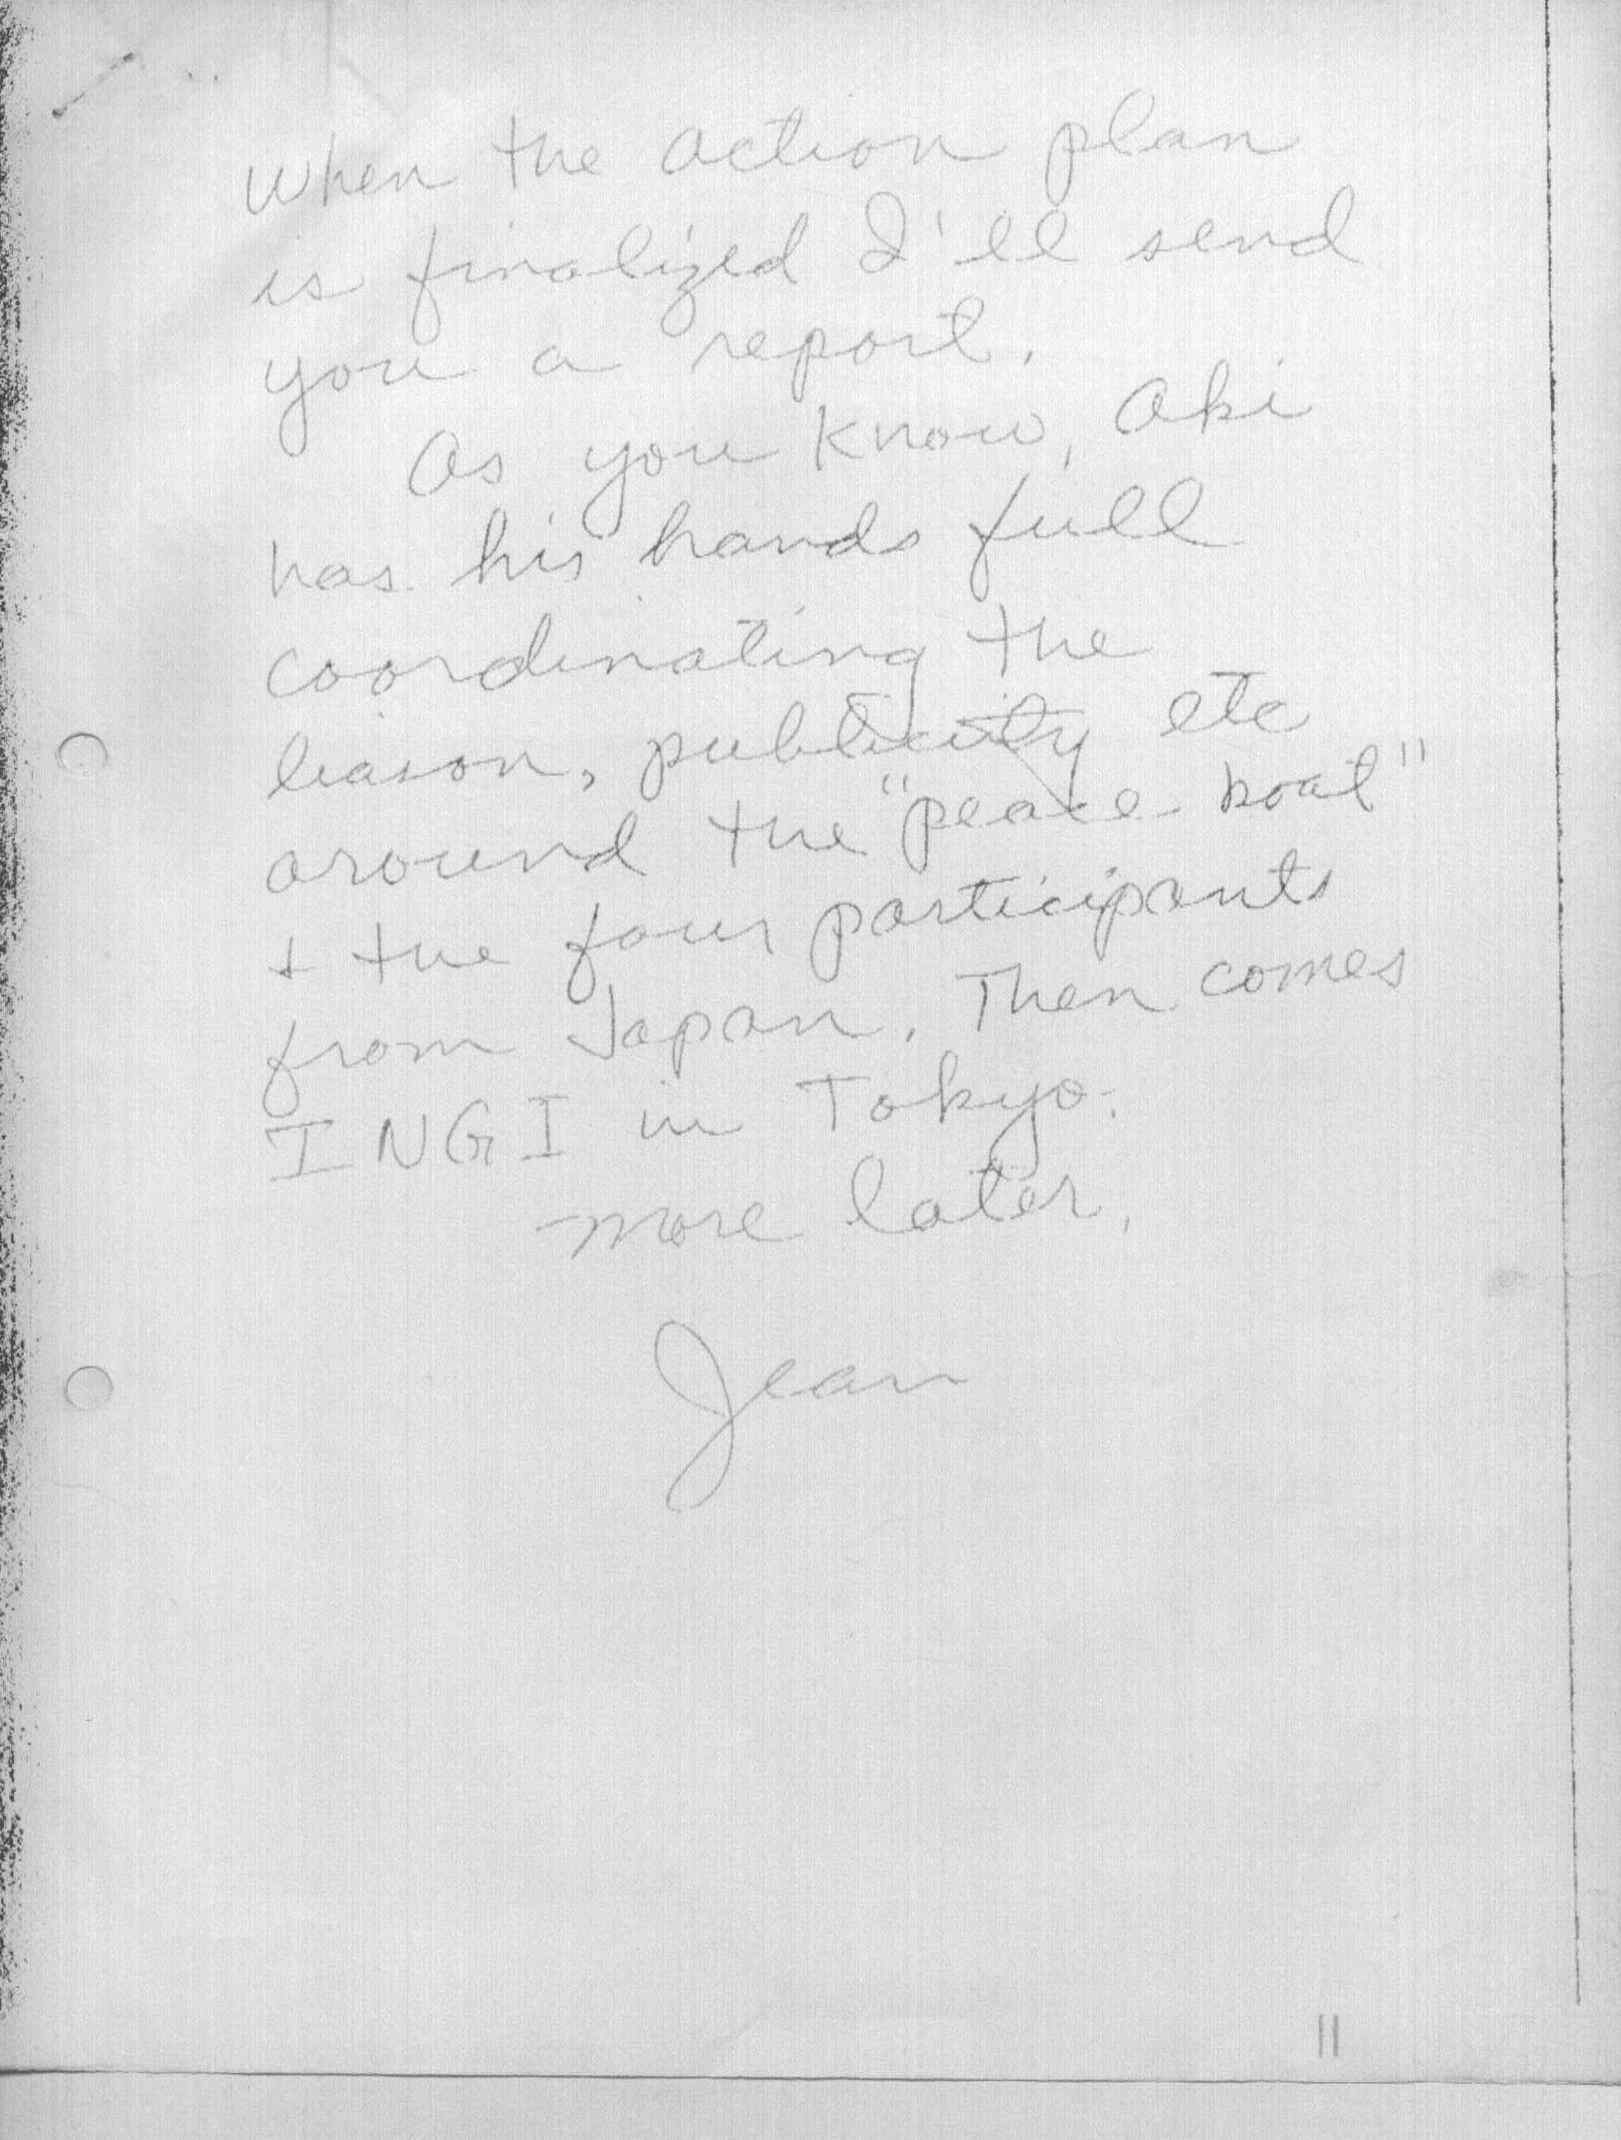 When the action plan
is finalized I'll send
you a report.
As you know, Aki
has his hands full
coordinating the
liason, publicity etc
around the "peace boat"
+ the four participants
from Japan. Then comes
INGI in Tokyo.
More later,
Jean
11